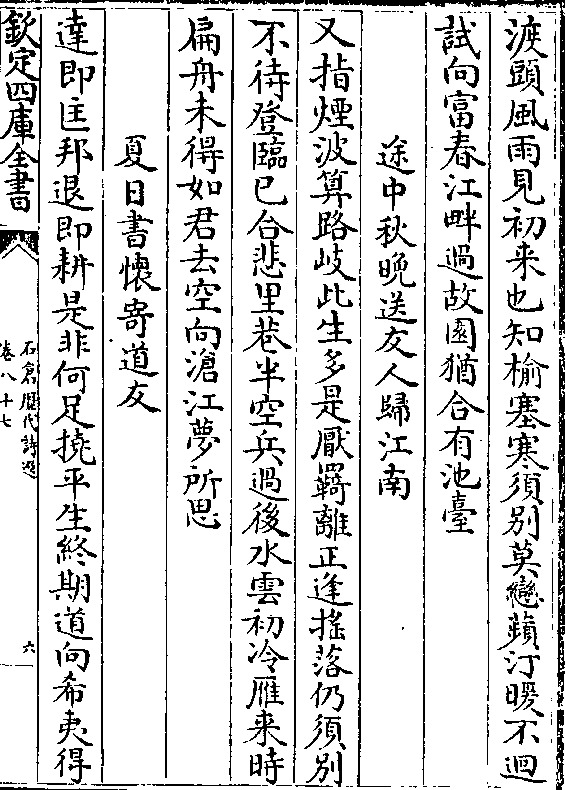 渡頭風雨見初来也知榆塞寒須别莫戀蘋汀暖不迴
試向富春江畔過故園猶合有池臺
途中秋晚送友人歸江南
又指煙波算路岐此生多是厭羇離正逢搖落仍須别
不待登臨已合悲里巷半空兵過後水雲初冷雁来時
扁舟未得如君去空向滄江夢所思
夏日書懷寄道友
達即匡邦退即耕是非何足撓平生終期道向希夷得
欽定四庫全書
石倉歷代詩選
卷八十七
六